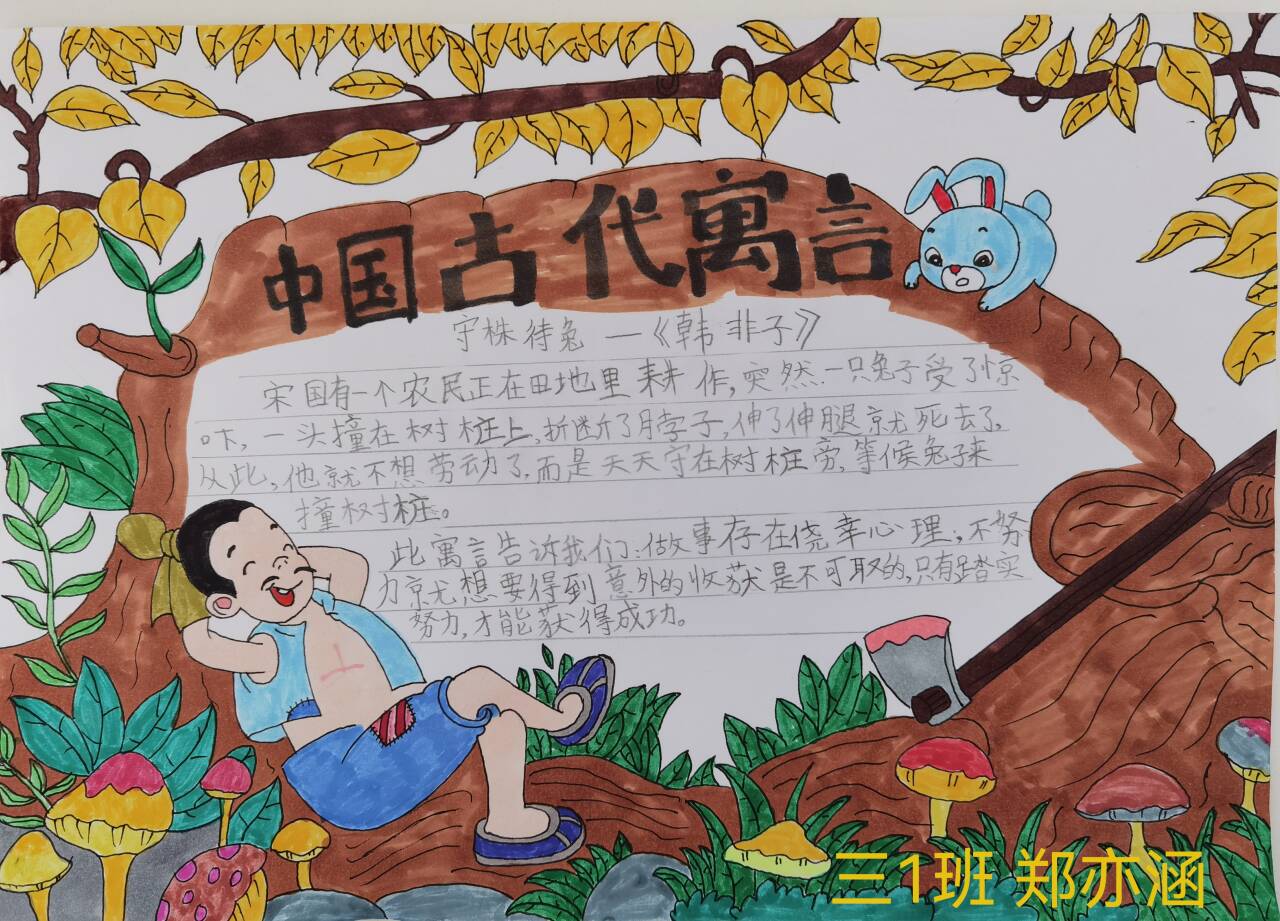 中国古代寓言
守株待兔—《韩非子》
宋国有一个农民正在田地里耕作,突然一只兔子受了惊
吓,一头撞在树桩上,折断了脖子,伸了伸腿就死去了,
从此,他就不想劳动了,而是天天守在树桩旁,等候兔子来
撞树桩。
此寓言告诉我们:做事存在侥幸心理,不努
力就想要得到意外的收获是不可取的,只有踏实
努力,才能获得成功。
三1班 郑亦涵